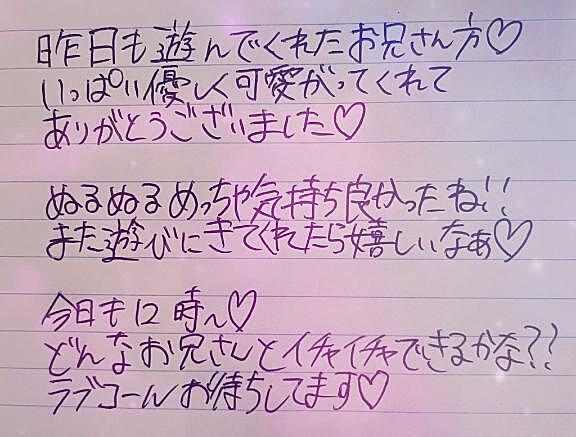 昨日も遊んでくれたお兄さん方♡
いっぱい優しく可愛がってくれて
ありがとうございました♡
ぬるぬるめっちゃ気持ち良かったね!!
また遊びにきてくれたら嬉しいなぁ♡
今日も12時〜♡
どんなお兄さんとイチャイチャできるかな??
ラブコールお待ちしてます♡